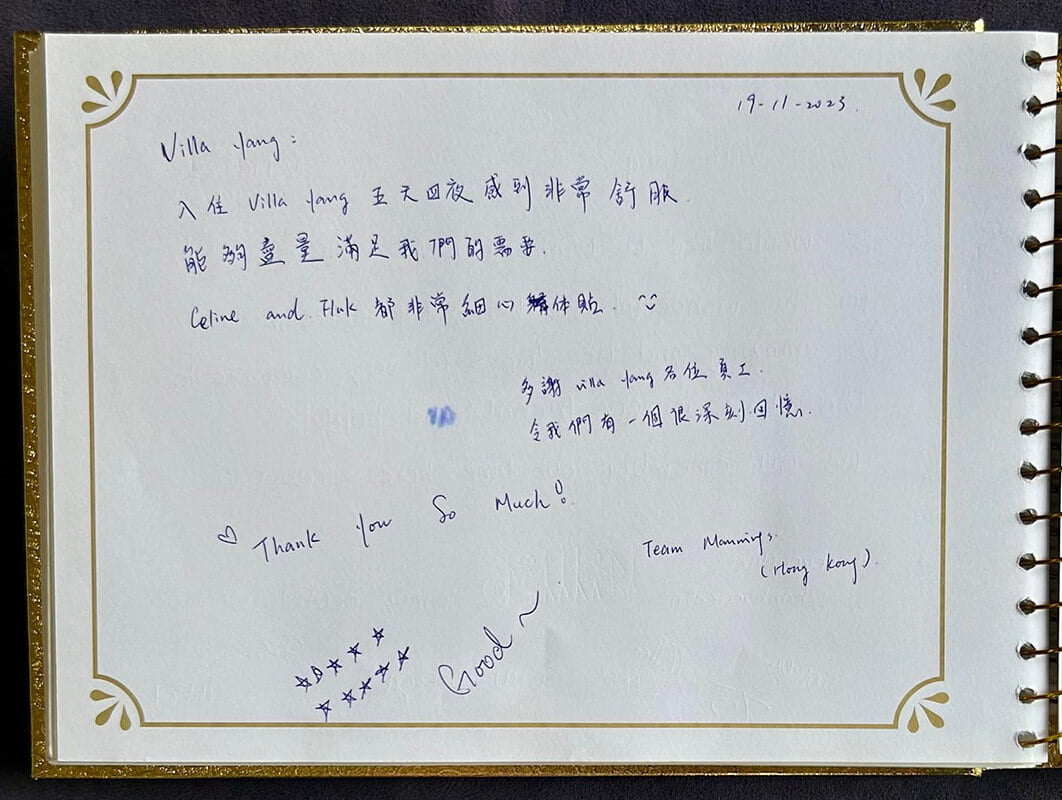 19-11-2023.
Villa Yang:
入住 Villa Yang 五天四夜感到非常舒服.
能夠盡量滿足我們的需要.
Celine and Fluk 都非常細心體貼.
多謝 villa Yang 各位員工.
令我們有一個很深刻回憶.
Thank you So Much!
Team Mannings
(Hong Kong).
Good~